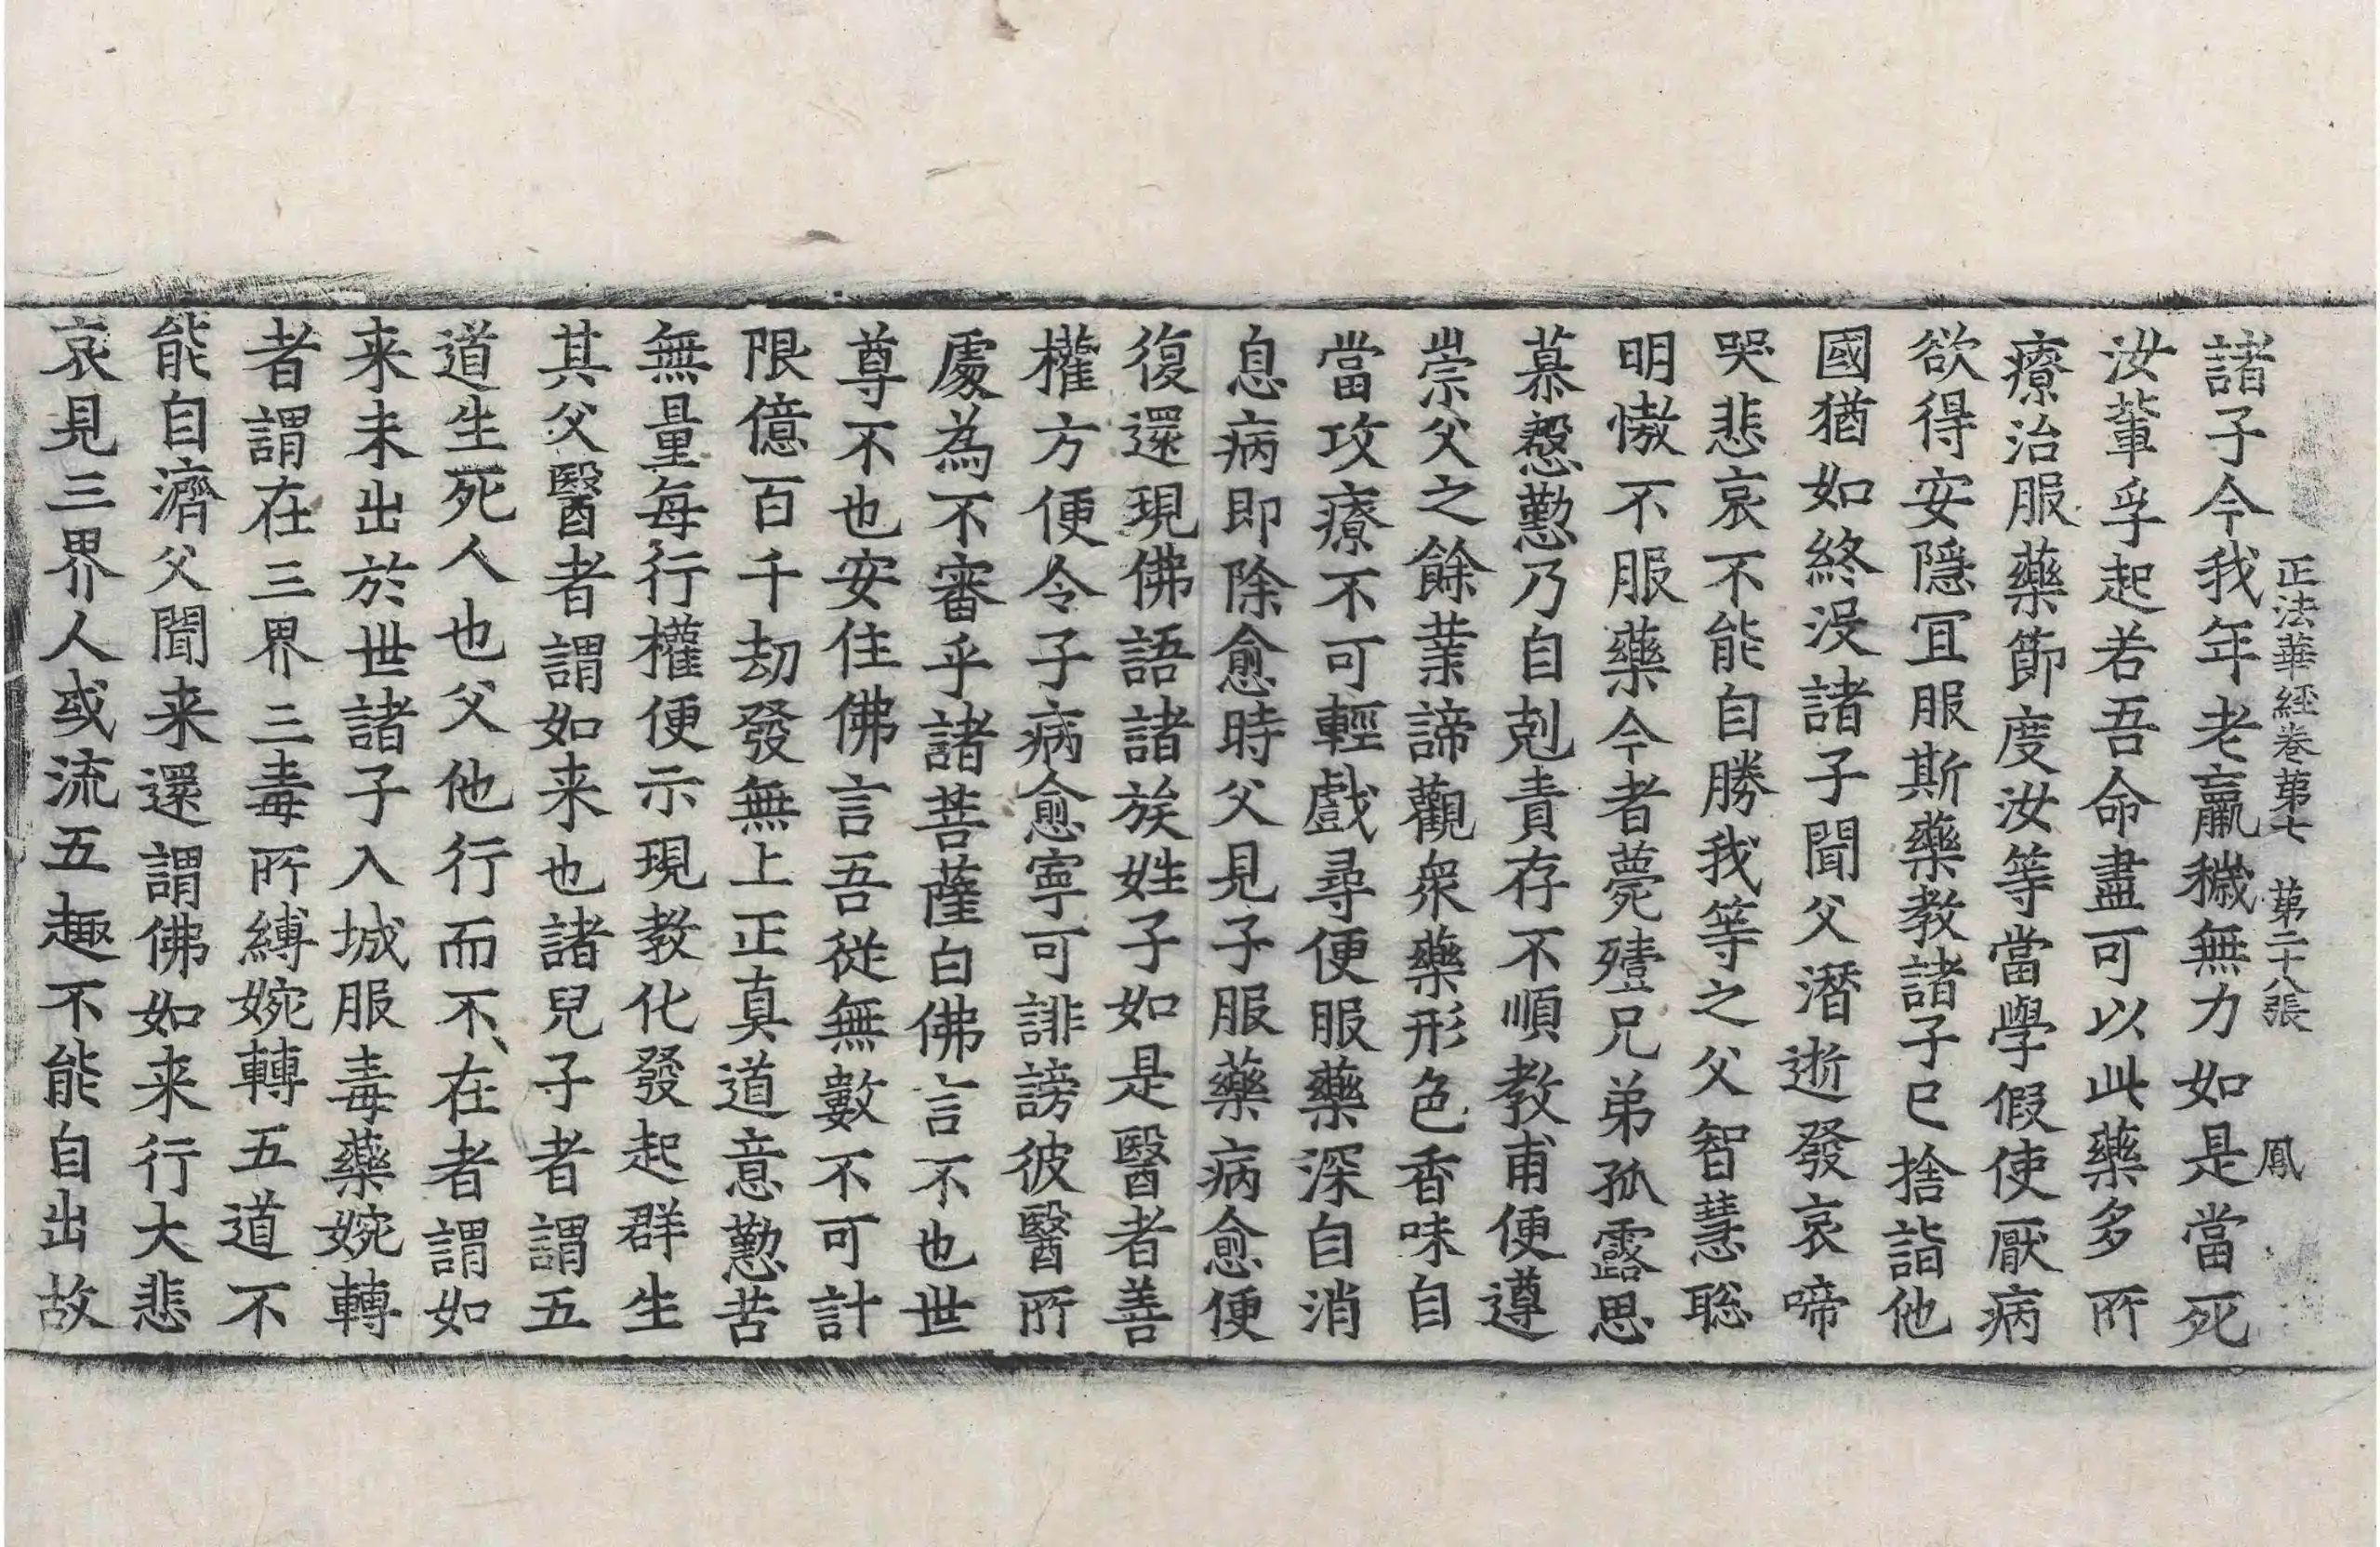 正法華経卷第七 第二十八張 鳳
諸子今我年老羸穢無力如是當死
汝輩孚起若吾命盡可以此藥多所
療治服藥節度汝等當學假使厭病
欲得安隱宜服斯藥教諸子已捨詣他
國猶如終没諸子聞父潛逝發哀啼
哭悲哀不能自勝我等之父智慧聡
明慠不服藥今者薨殪兄弟孤露思
慕慇懃乃自剋責存不順教甫便遵
崇父之餘業諦觀衆藥形色香味自
當攻療不可輕戲尋便服藥深自消
息病即除愈時父見子服藥病愈便
復還現佛語諸族姓子如是醫者善
權方便令子病愈寧可誹謗彼醫所
處為不審乎諸菩薩白佛言不也世
尊不也安住佛言吾従無數不可計
限億百千劫發無上正真道意懃苦
無量每行權便示現教化發起群生
其父醫者謂如来也諸兒子者謂五
道生死人也父他行而不在者謂如
来未出於世諸子入城服毒藥婉轉
者謂在三界三毒所縛婉轉五道不
能自濟父聞来還謂佛如来行大悲
哀見三界人或流五趣不能自出故